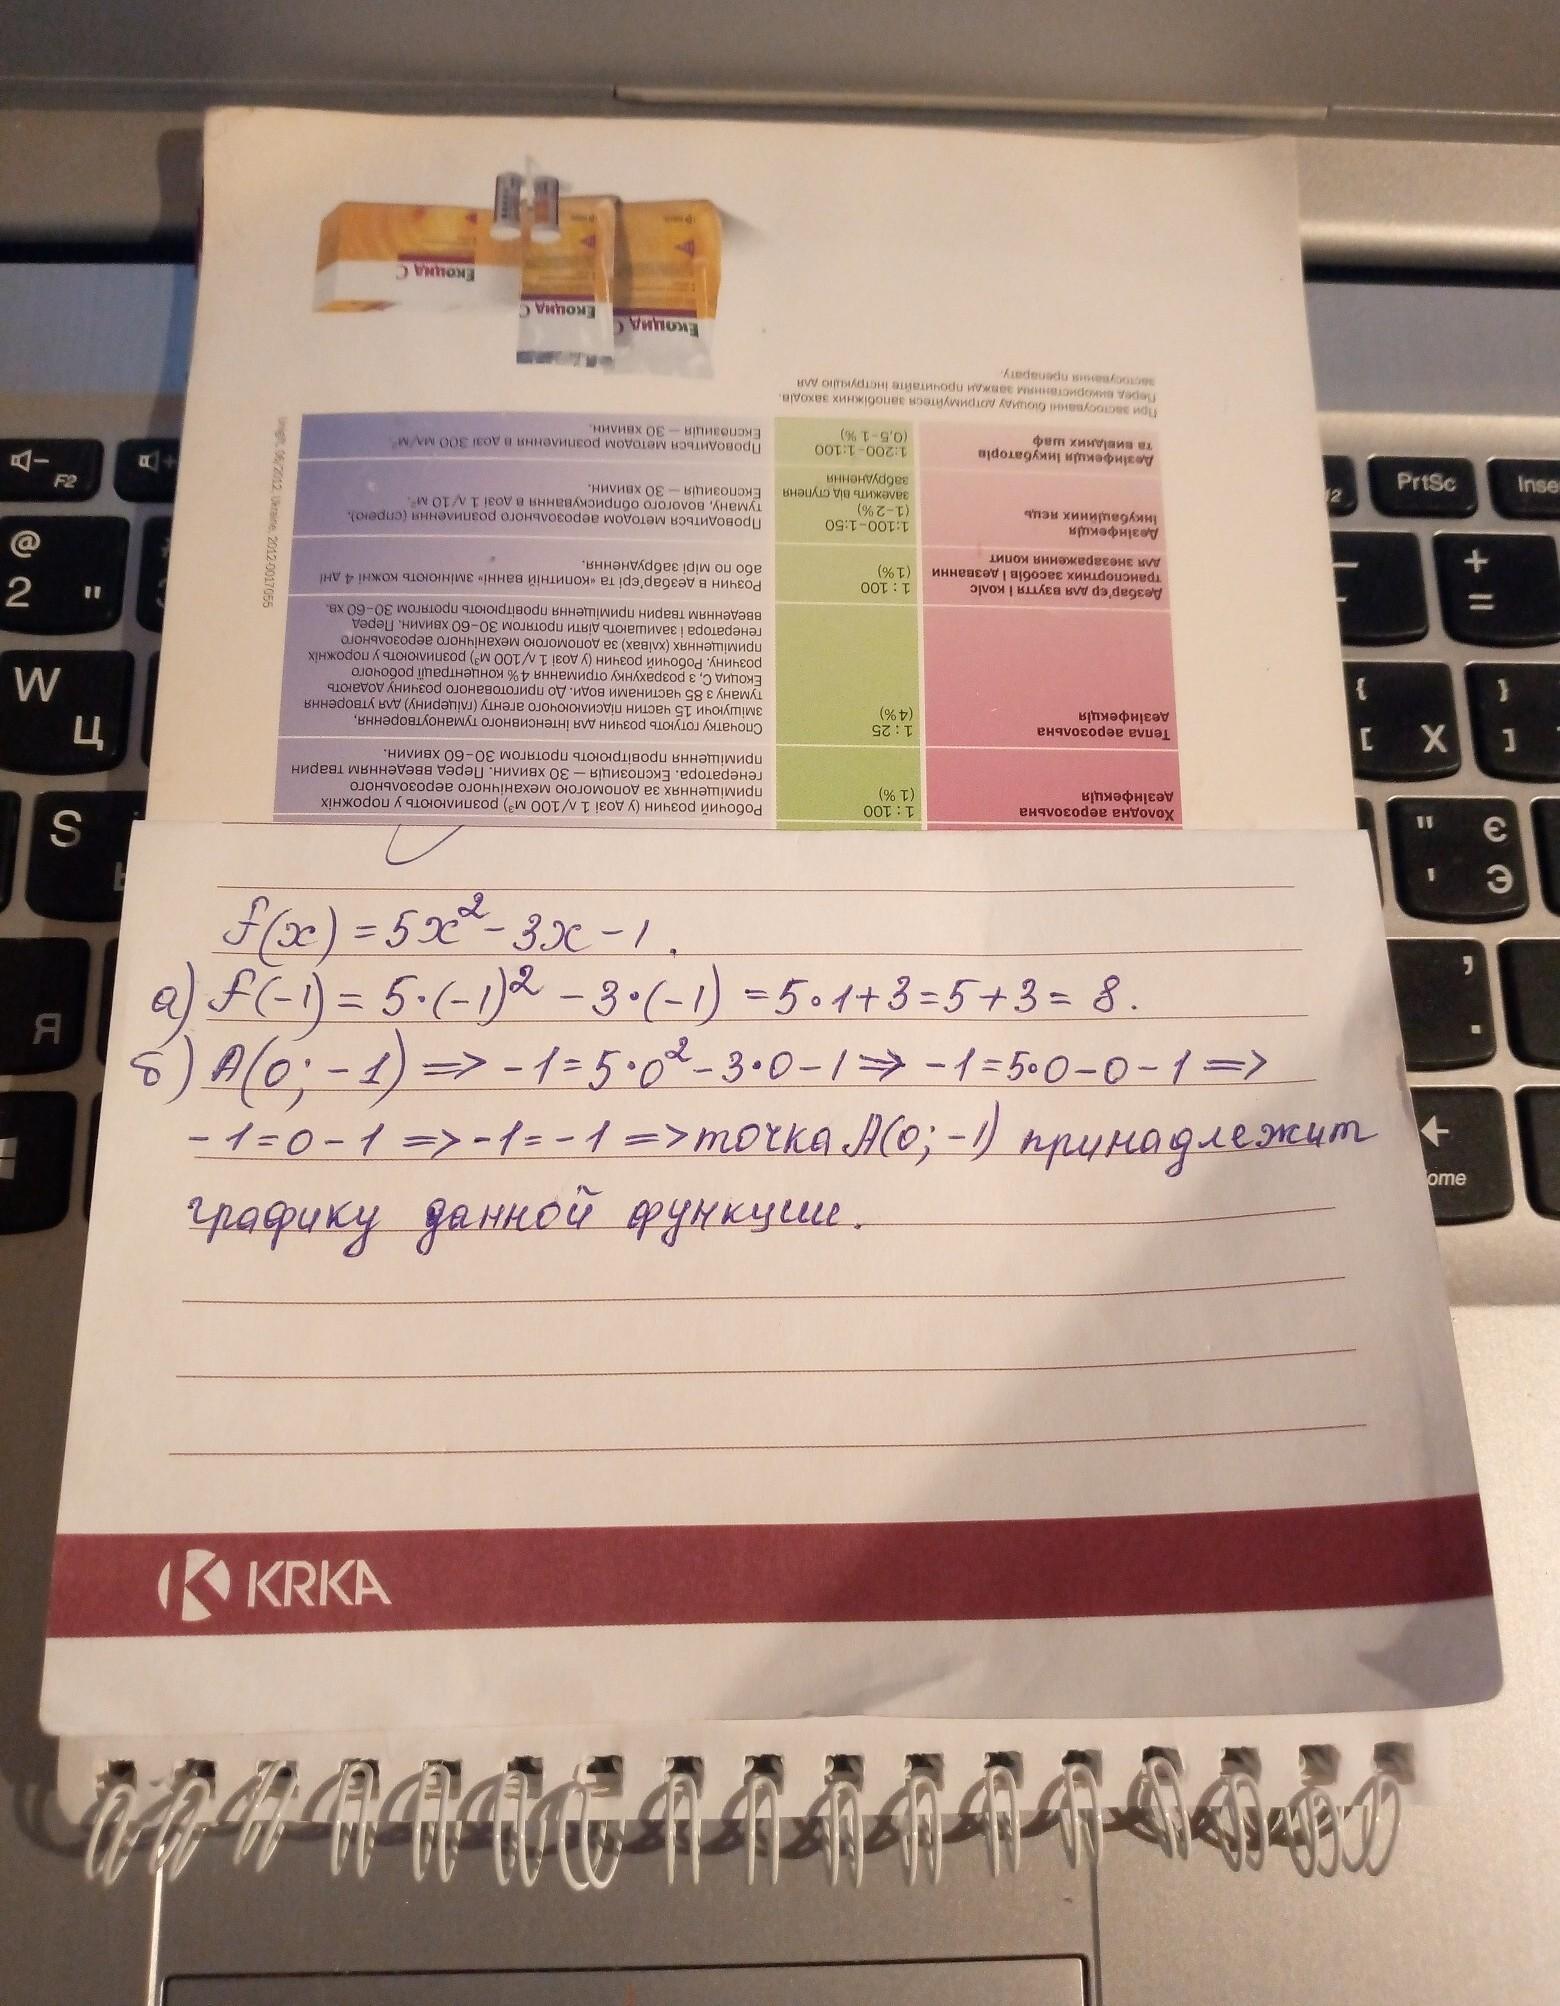 Екоцид С
Екоцид С
Екоцид С
При застосуванні біоциду дотримуйтеся запобіжних заходів.
Перед використанням завжди прочитайте інструкцію для
застосування препарату.
Дезінфекція інкубаторів
та вивідних шаф
1:200-1:100
(0,5-1 %)
Проводиться методом розпилення в дозі 300 мл/м³.
Експозиція — 30 хвилин.
Дезінфекція
інкубаційних яєць
1:100-1:50
(1-2%)
залежить від ступеня
забруднення
Проводиться методом аерозольного розпилення (спрею),
туману, вологого обприскування в дозі 1 л/10 м².
Експозиція — 30 хвилин.
Дезбар'єр для взуття і коліс
транспортних засобів і дезванни
для знезараження копит
1 : 100
(1%)
Розчин в дезбар'єрі та «копитній ванні» змінюють кожні 4 дні
або по мірі забруднення.
Тепла аерозольна
дезінфекція
1 : 25
(4%)
Спочатку готують розчин для інтенсивного туманоутворення,
змішуючи 15 частин підсилюючого агенту (гліцерину) для утворення
туману з 85 частинами води. До приготованого розчину додають
Екоцид С, з розрахунку отримання 4% концентрації робочого
розчину. Робочий розчин (у дозі 1 л/100 м³) розпилюють у порожніх
приміщеннях (хлівах) за допомогою механічного аерозольного
генератора і залишають діяти протягом 30-60 хвилин. Перед
введенням тварин приміщення провітрюють протягом 30-60 хв.
Холодна аерозольна
дезінфекція
1 : 100
(1 %)
Робочий розчин (у дозі 1 л/100 м³) розпилюють у порожніх
приміщеннях за допомогою механічного аерозольного
генератора. Експозиція — 30 хвилин. Перед введенням тварин
приміщення провітрюють протягом 30-60 хвилин.
06/2012, Ukraine, 2012-0017055
f(x) = 5x² - 3x - 1.
а) f(-1) = 5·(-1)² - 3·(-1) = 5·1+3=5+3= 8.
б) A(0; -1) => -1=5·0²-3·0-1=> -1=5·0-0-1=>
-1=0-1 => -1=-1 => точка A(0; -1) принадлежит
графику данной функции.
KRKA
F2
PrtSc
Inse
@
2 "
+
=
W
Ц
{
[ Х
}
]
S
" Є
' Э
Я
,
.
←
ome